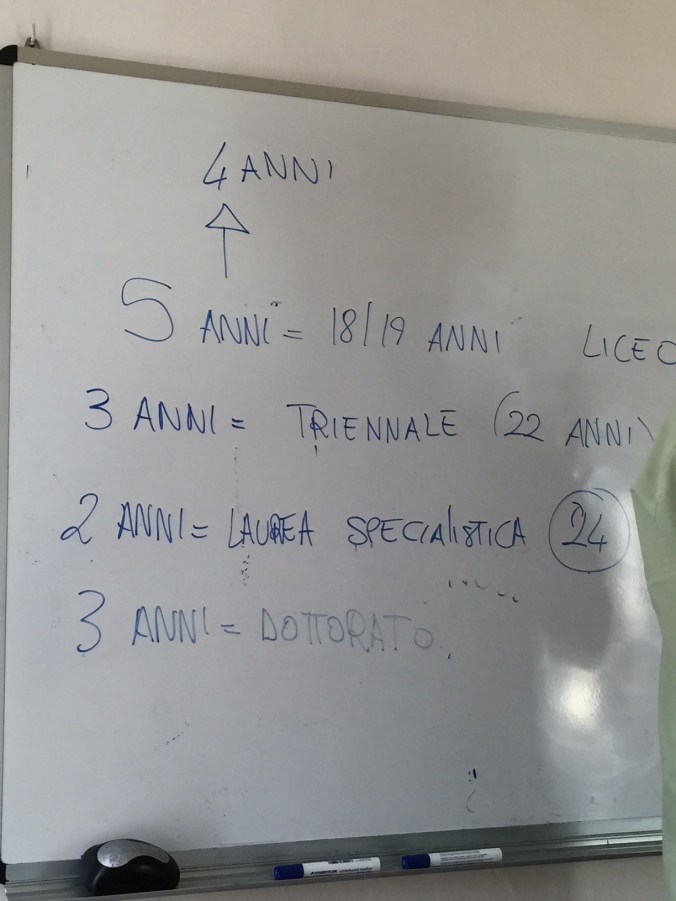 4 ANNI
5 ANNI = 18/19 ANNI LICEO
3 ANNI = TRIENNALE (22 ANNI)
2 ANNI = LAUREA SPECIALISTICA 24
3 ANNI = DOTTORATO